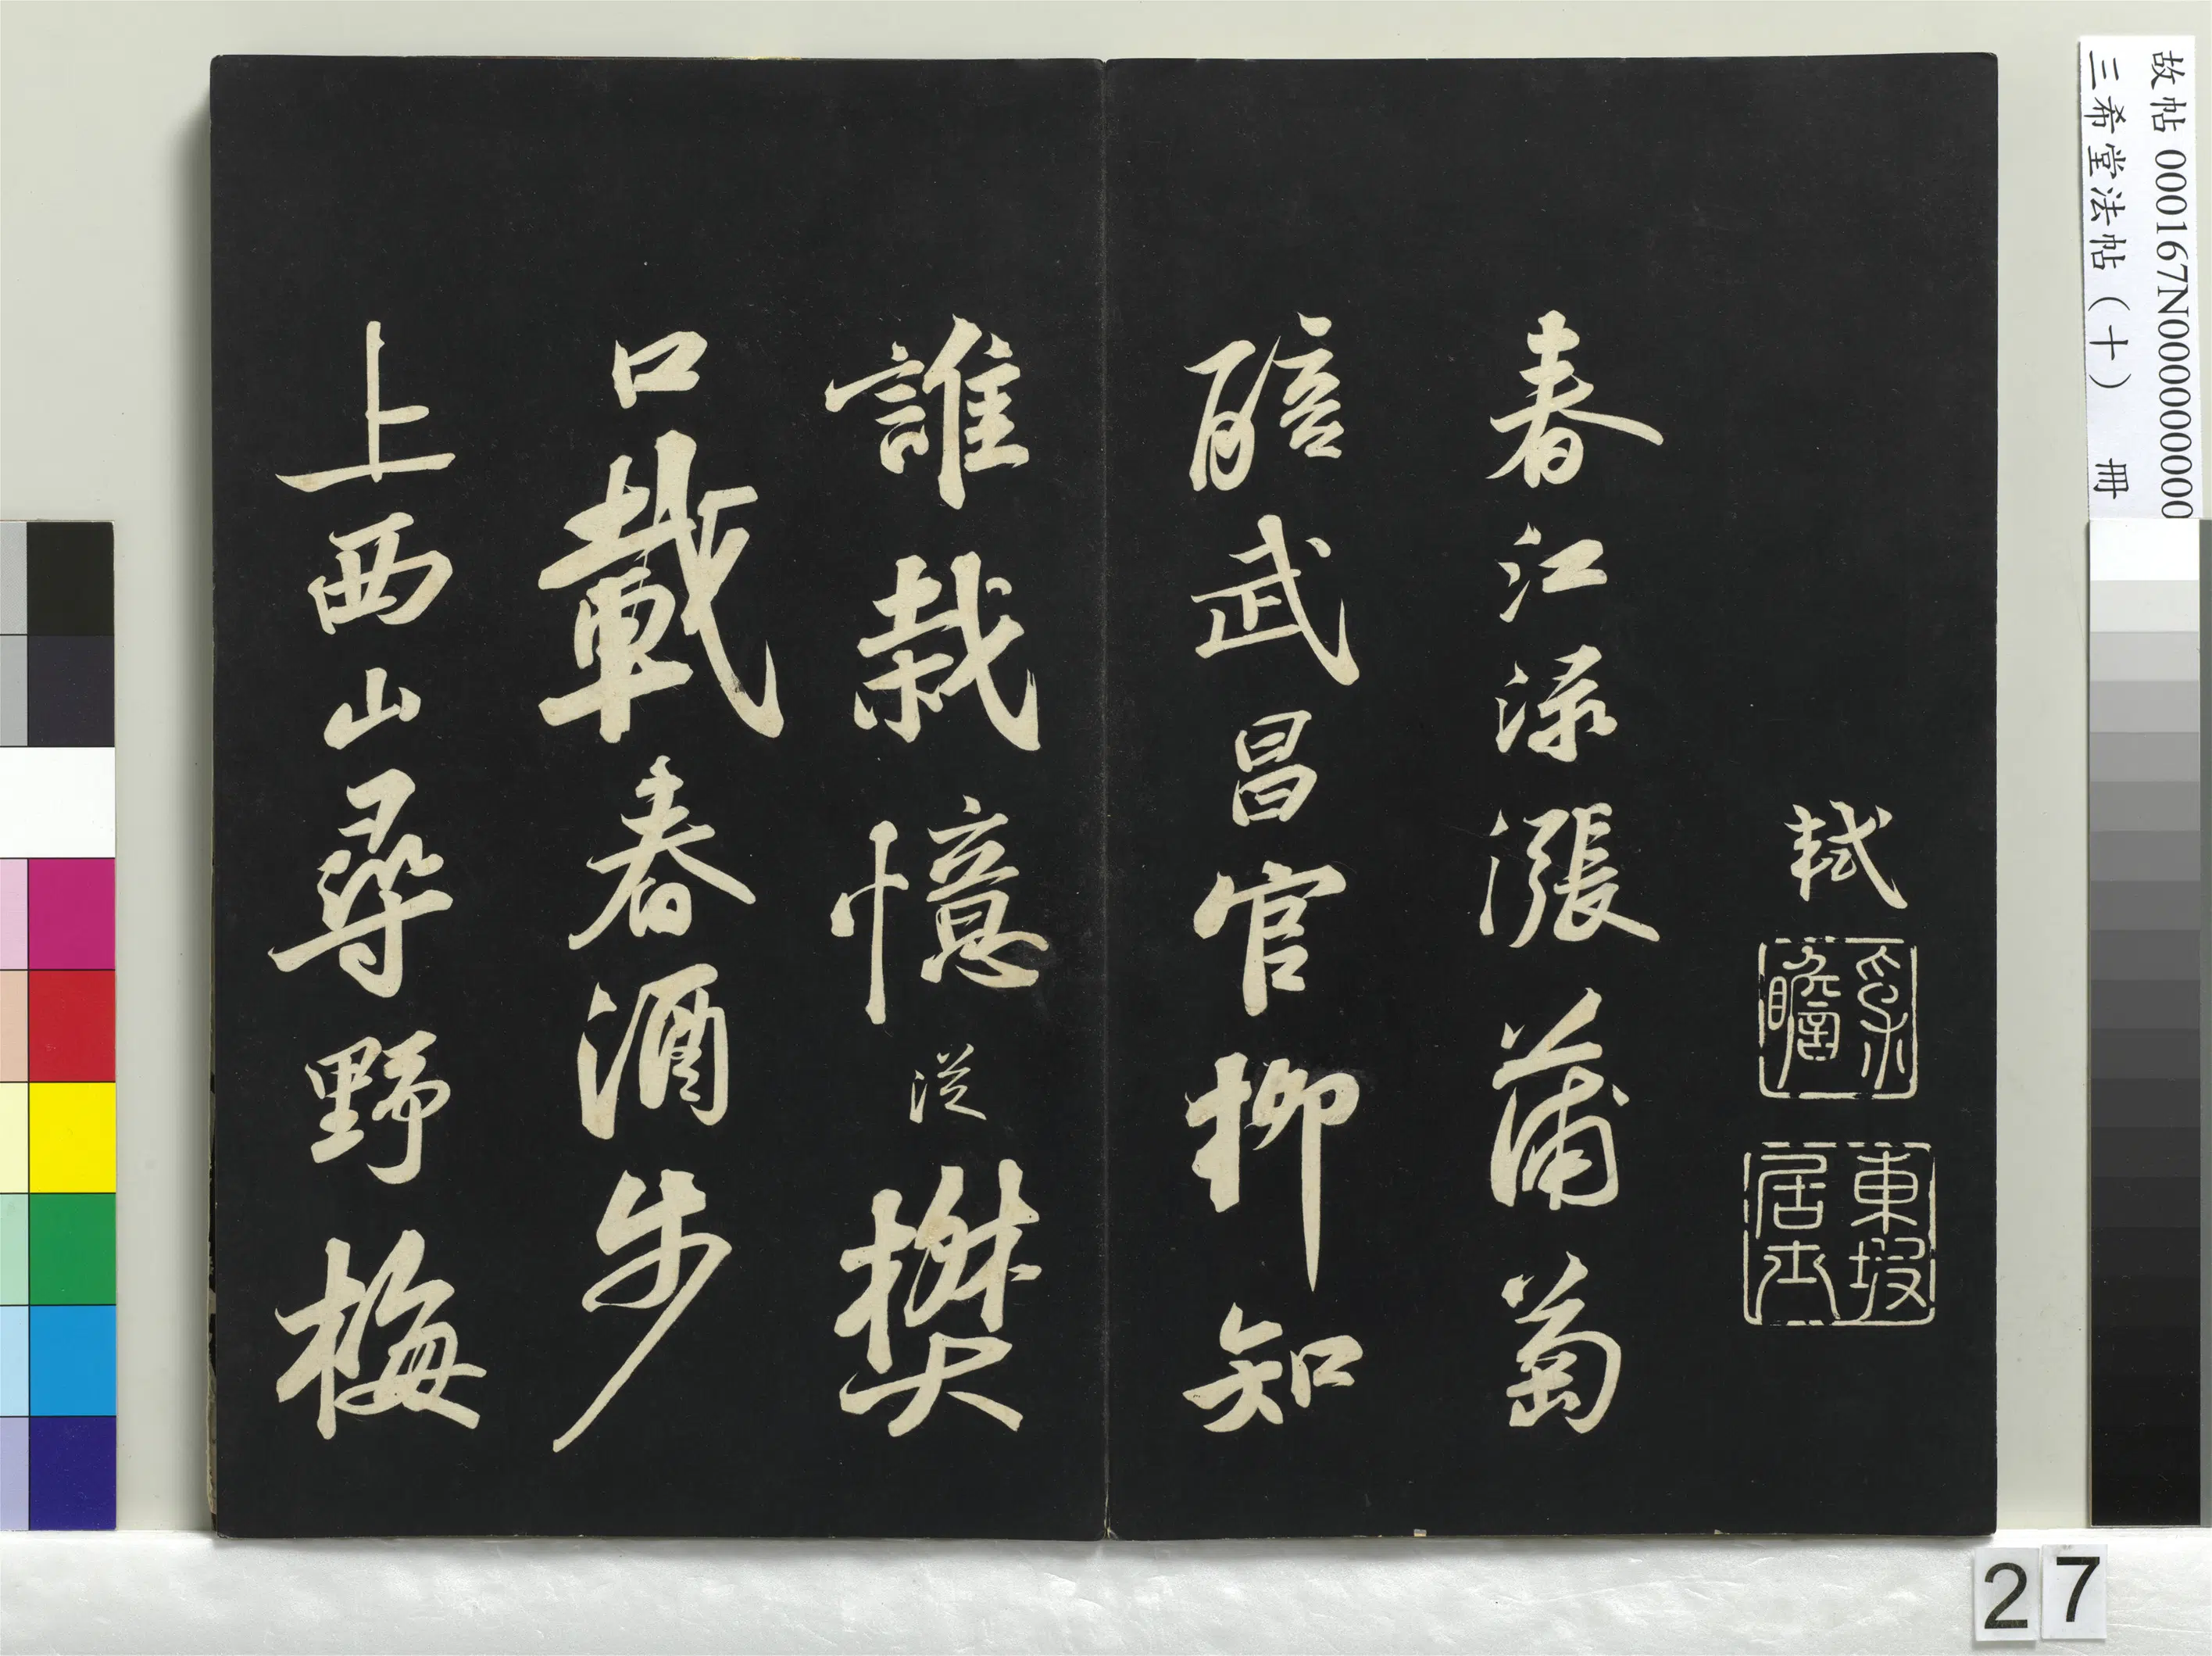 軾
子瞻
東坡居士
春江淥漲蒲萄
醅武昌官柳知
誰栽憶從樊
口載春酒步
上西山尋野梅
故帖 000167N000000000
三希堂法帖（十） 冊
27